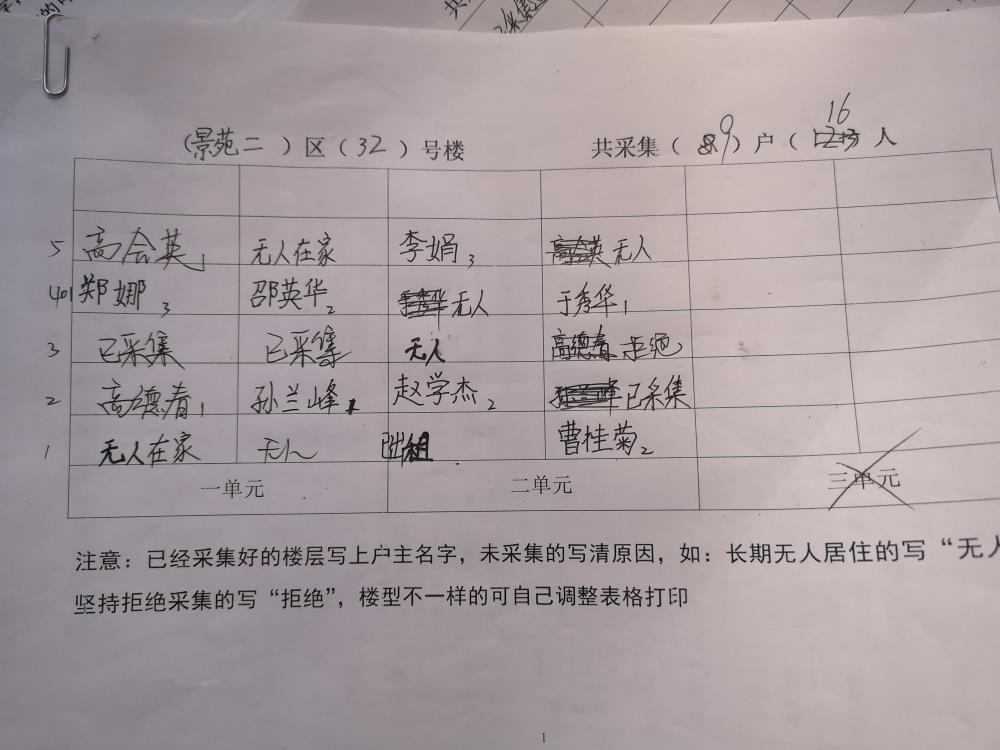 （景苑二）区（32）号楼 共采集（9）户（16人
5 高会英1 无人在家 李娟3 无人
401 郑娜3 邵英华2 无人 于秀华1
3 已采集 已采集 无人 高德春 拒绝
2 高德春1 孙兰峰 赵学杰2 已采集
1 无人在家 无人 曹桂菊2
一单元 二单元 三单元
注意：已经采集好的楼层写上户主名字，未采集的写清原因，如：长期无人居住的写“无人
坚持拒绝采集的写“拒绝”，楼型不一样的可自己调整表格打印
1